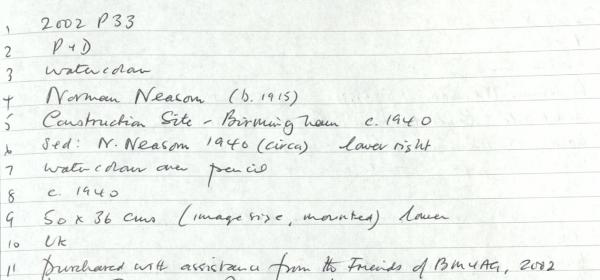 1 2002 P33
2 P+D
3 watercolour
4 Norman Neasom (b. 1915)
5 Construction Site - Birmingham c. 1940
6 Sed: N. Neasom 1940 (circa) lower right
7 watercolour over pencil
8 c. 1940
9 50 x 36 cms (image size, mounted) lower
10 UK
11 purchased with assistance from the Friends of BM+AG, 2002